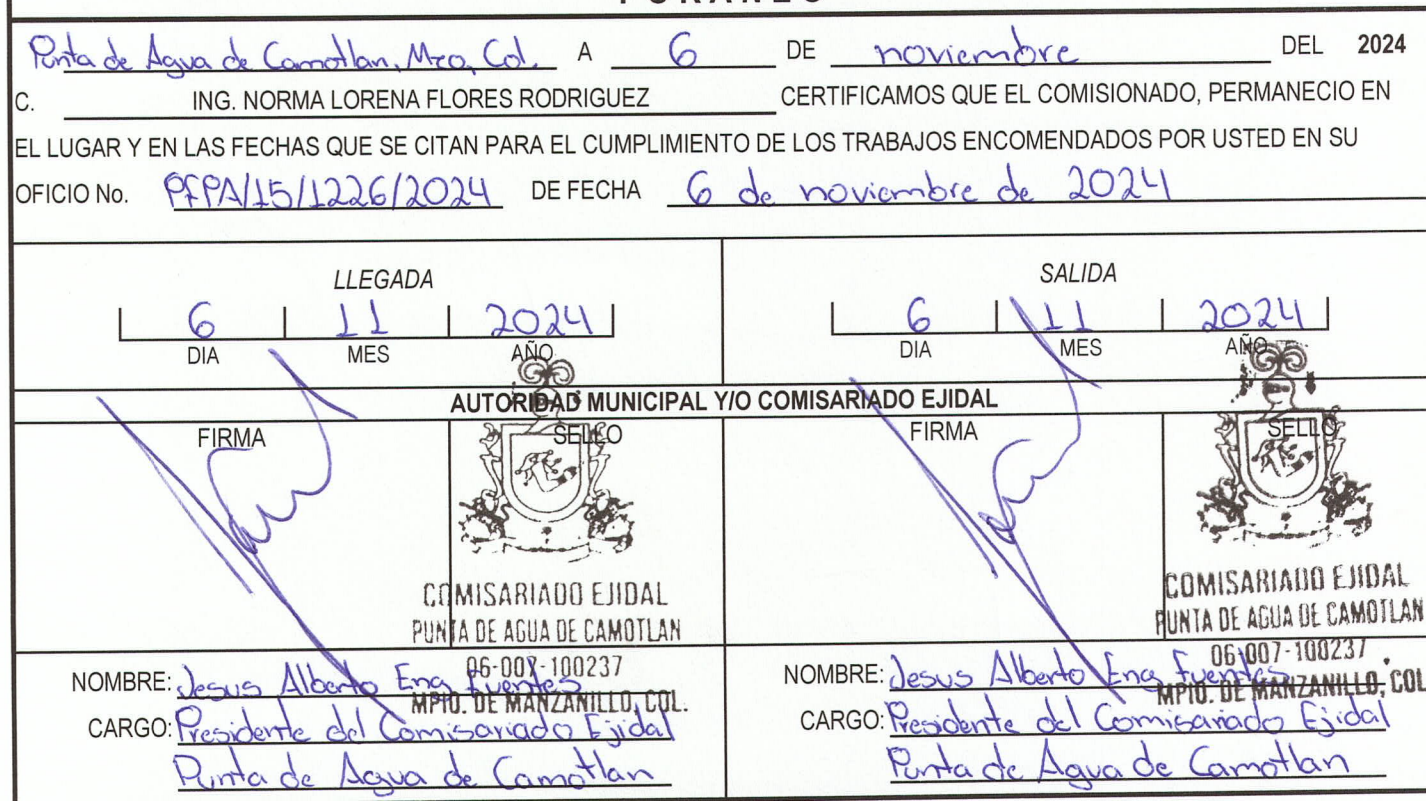 Punta de Agua de Camotlan, Mzo, Col. A 6 DE noviembre DEL 2024
C. ING. NORMA LORENA FLORES RODRIGUEZ CERTIFICAMOS QUE EL COMISIONADO, PERMANECIO EN
EL LUGAR Y EN LAS FECHAS QUE SE CITAN PARA EL CUMPLIMIENTO DE LOS TRABAJOS ENCOMENDADOS POR USTED EN SU
OFICIO No. PFPA/15/1226/2024 DE FECHA 6 de noviembre de 2024
LLEGADA
6 11 2024
DIA MES AÑO
SALIDA
6 11 2024
DIA MES AÑO
AUTORIDAD MUNICIPAL Y/O COMISARIADO EJIDAL
FIRMA SELLO
COMISARIADO EJIDAL
PUNTA DE AGUA DE CAMOTLAN
06-007-100237
MPIO. DE MANZANILLO, COL.
NOMBRE: Jesus Alberto Ena Fuentes
CARGO: Presidente del Comisariado Ejidal
Punta de Agua de Camotlan
FIRMA SELLO
COMISARIADO EJIDAL
PUNTA DE AGUA DE CAMOTLAN
06-007-100237
MPIO. DE MANZANILLO, COL
NOMBRE: Jesus Alberto Ena Fuentes
CARGO: Presidente del Comisariado Ejidal
Punta de Agua de Camotlan